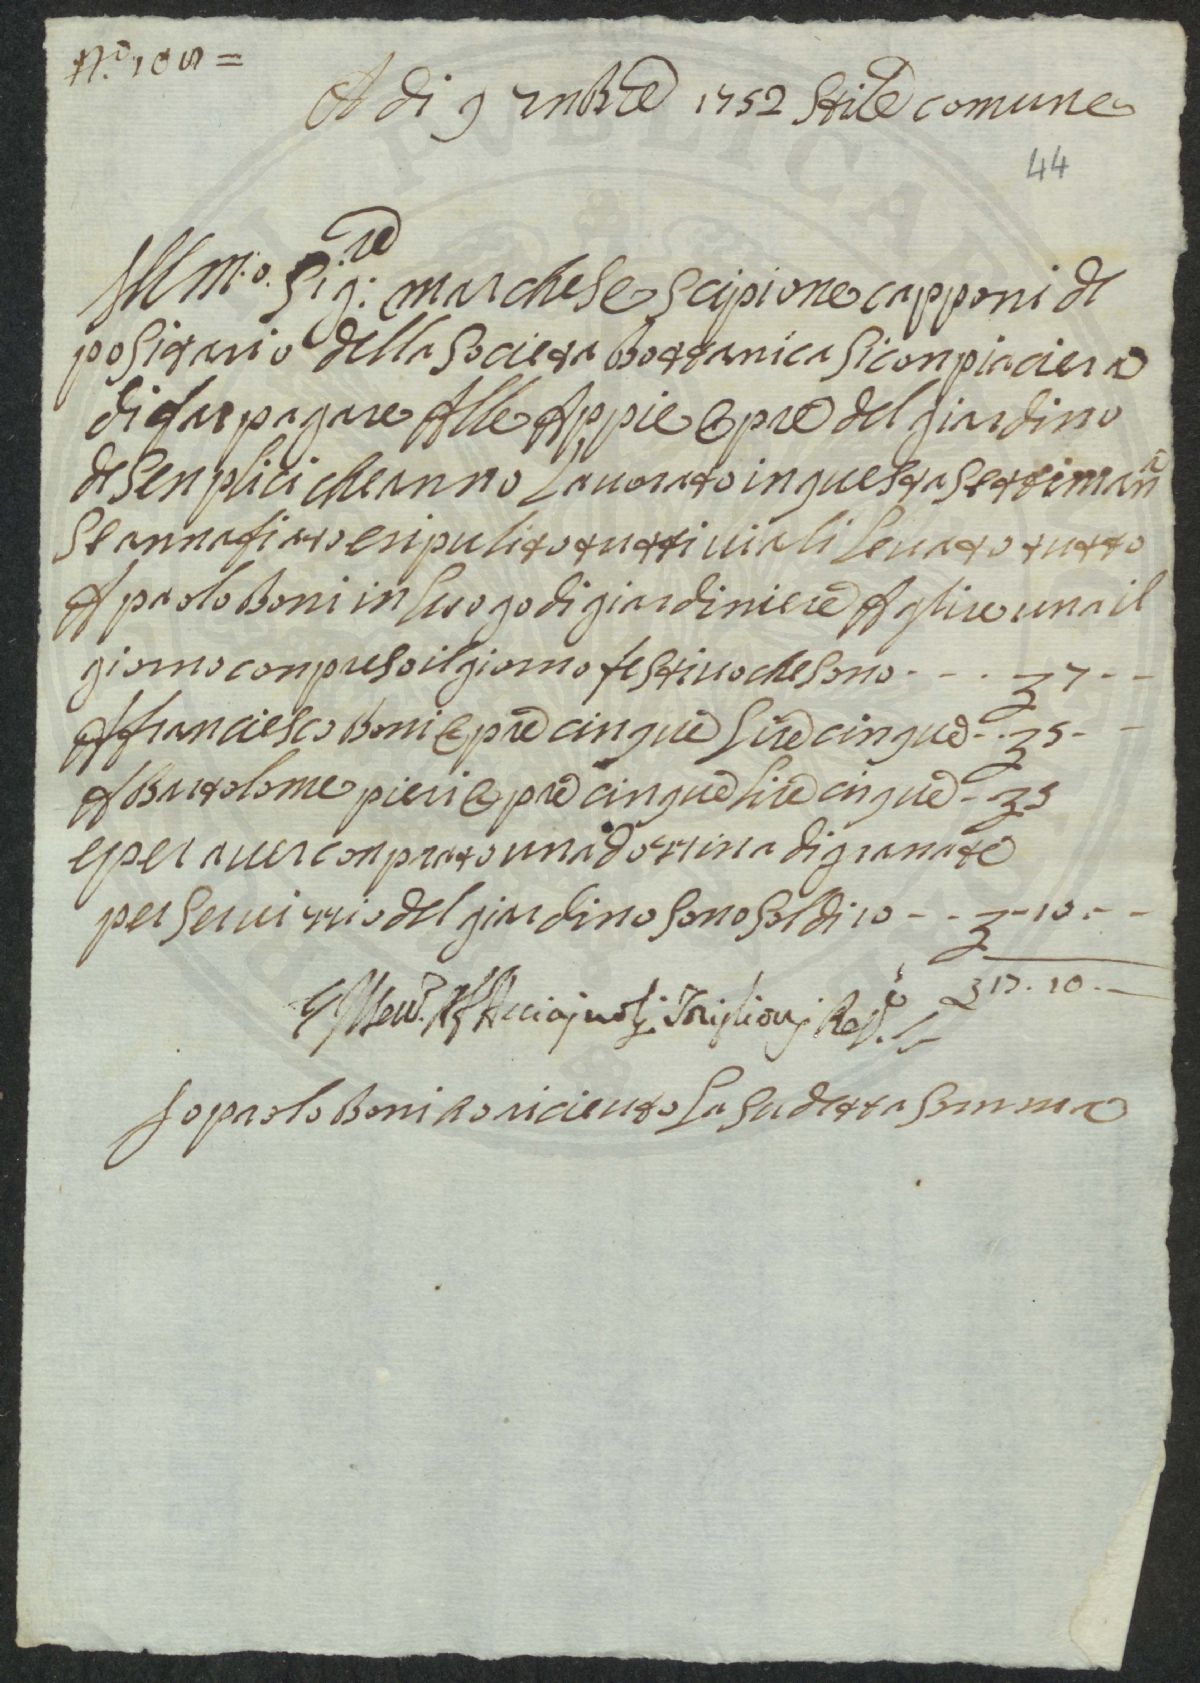 A di 9 7mbre 1752 Stile comune
44
Ill m.o Sig.re marchese Scipione capponi de
positario della Societa Bottanica Si conpiaciera
di far pagare Alle Appie Opre del giardino
de Senplici che anno Lauorato in questa Settimana
Se annafiato e ripulito tutti i uiali Leuato tutto
A paolo Boni in Luogo di giardiniere A  lire una il
giorno conpreso il giorno festiuo che Sono - - - 7 - -
A franciesco Boni Opre cinque Lire cinque - - 5 - -
A Bartolome pieri Opre cinque Lire cinque - 5
e per auer conprato una dozzina di granate
per Seruizzio del giardino Sono Soldi 10 - - - 10 - -
17 . 10 . -
Acciajuoli
Io paolo Boni o riceuto La Sudetta Somma